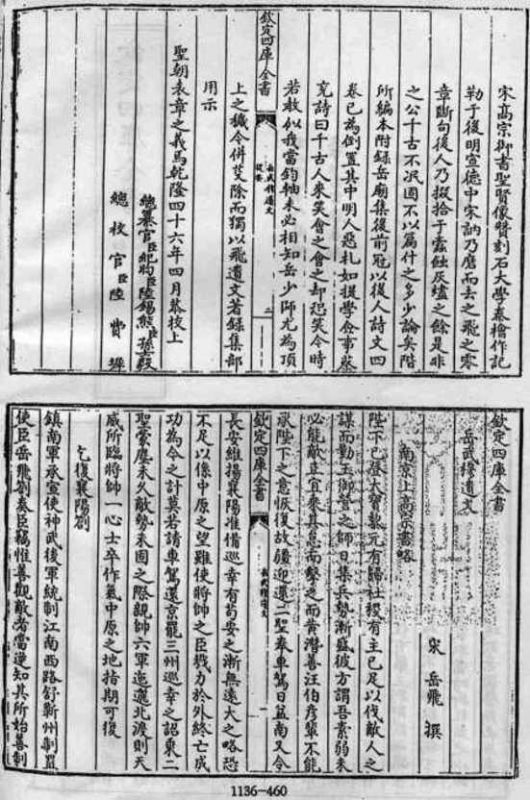 宋高宗御書聖賢像贊刻石大學秦檜作記
勒于後明宣德中宋訥乃磨而去之飛之零
章斷句後人乃掇拾于蠹蝕灰燼之餘是非
之公千古不泯固不以篇什之多少論矣階
所編本附録岳廟集後前冠以後人詩文四
卷已為倒置其中明人惡札如提學僉事蔡
兗詩曰千古人來笑會之會之却恐笑今時
若教似我當鈞軸未必相知岳少師尤為頂
欽定四庫全書
岳武穆遺文
提要
二
上之穢今併芟除而獨以飛遺文著録集部
用示
聖朝表章之義焉乾隆四十六年四月恭校上
總纂官臣紀昀臣陸錫熊臣孫士毅
總校官臣陸費墀
欽定四庫全書
岳武穆遺文
宋 岳飛 撰
南京上高宗書略
陛下已登大寶黎元有歸社稷有主已足以伐敵人之
謀而勤王御營之師日集兵勢漸盛彼方謂吾素弱未
必能敵正宜乘其怠而擊之而黃潛善汪伯彥輩不能
承陛下之意恢復故疆迎還二聖奉車駕日益南又令
欽定四庫全書
岳武穆遺文
長安維揚襄陽准備巡幸有苟安之漸無遠大之略恐
不足以係中原之望雖使將帥之臣戮力於外終亡成
功為今之計莫若請車駕還京罷三州巡幸之詔乘二
聖蒙塵未久敵勢未固之際親帥六軍迤邐北渡則天
威所臨將帥一心士卒作氣中原之地指期可復
乞復襄陽劄
鎮南軍承宣使神武後軍統制江南西路舒蘄州制置
使臣岳飛劄奏臣竊惟善觀敵者當逆知其所始善制
1136-460